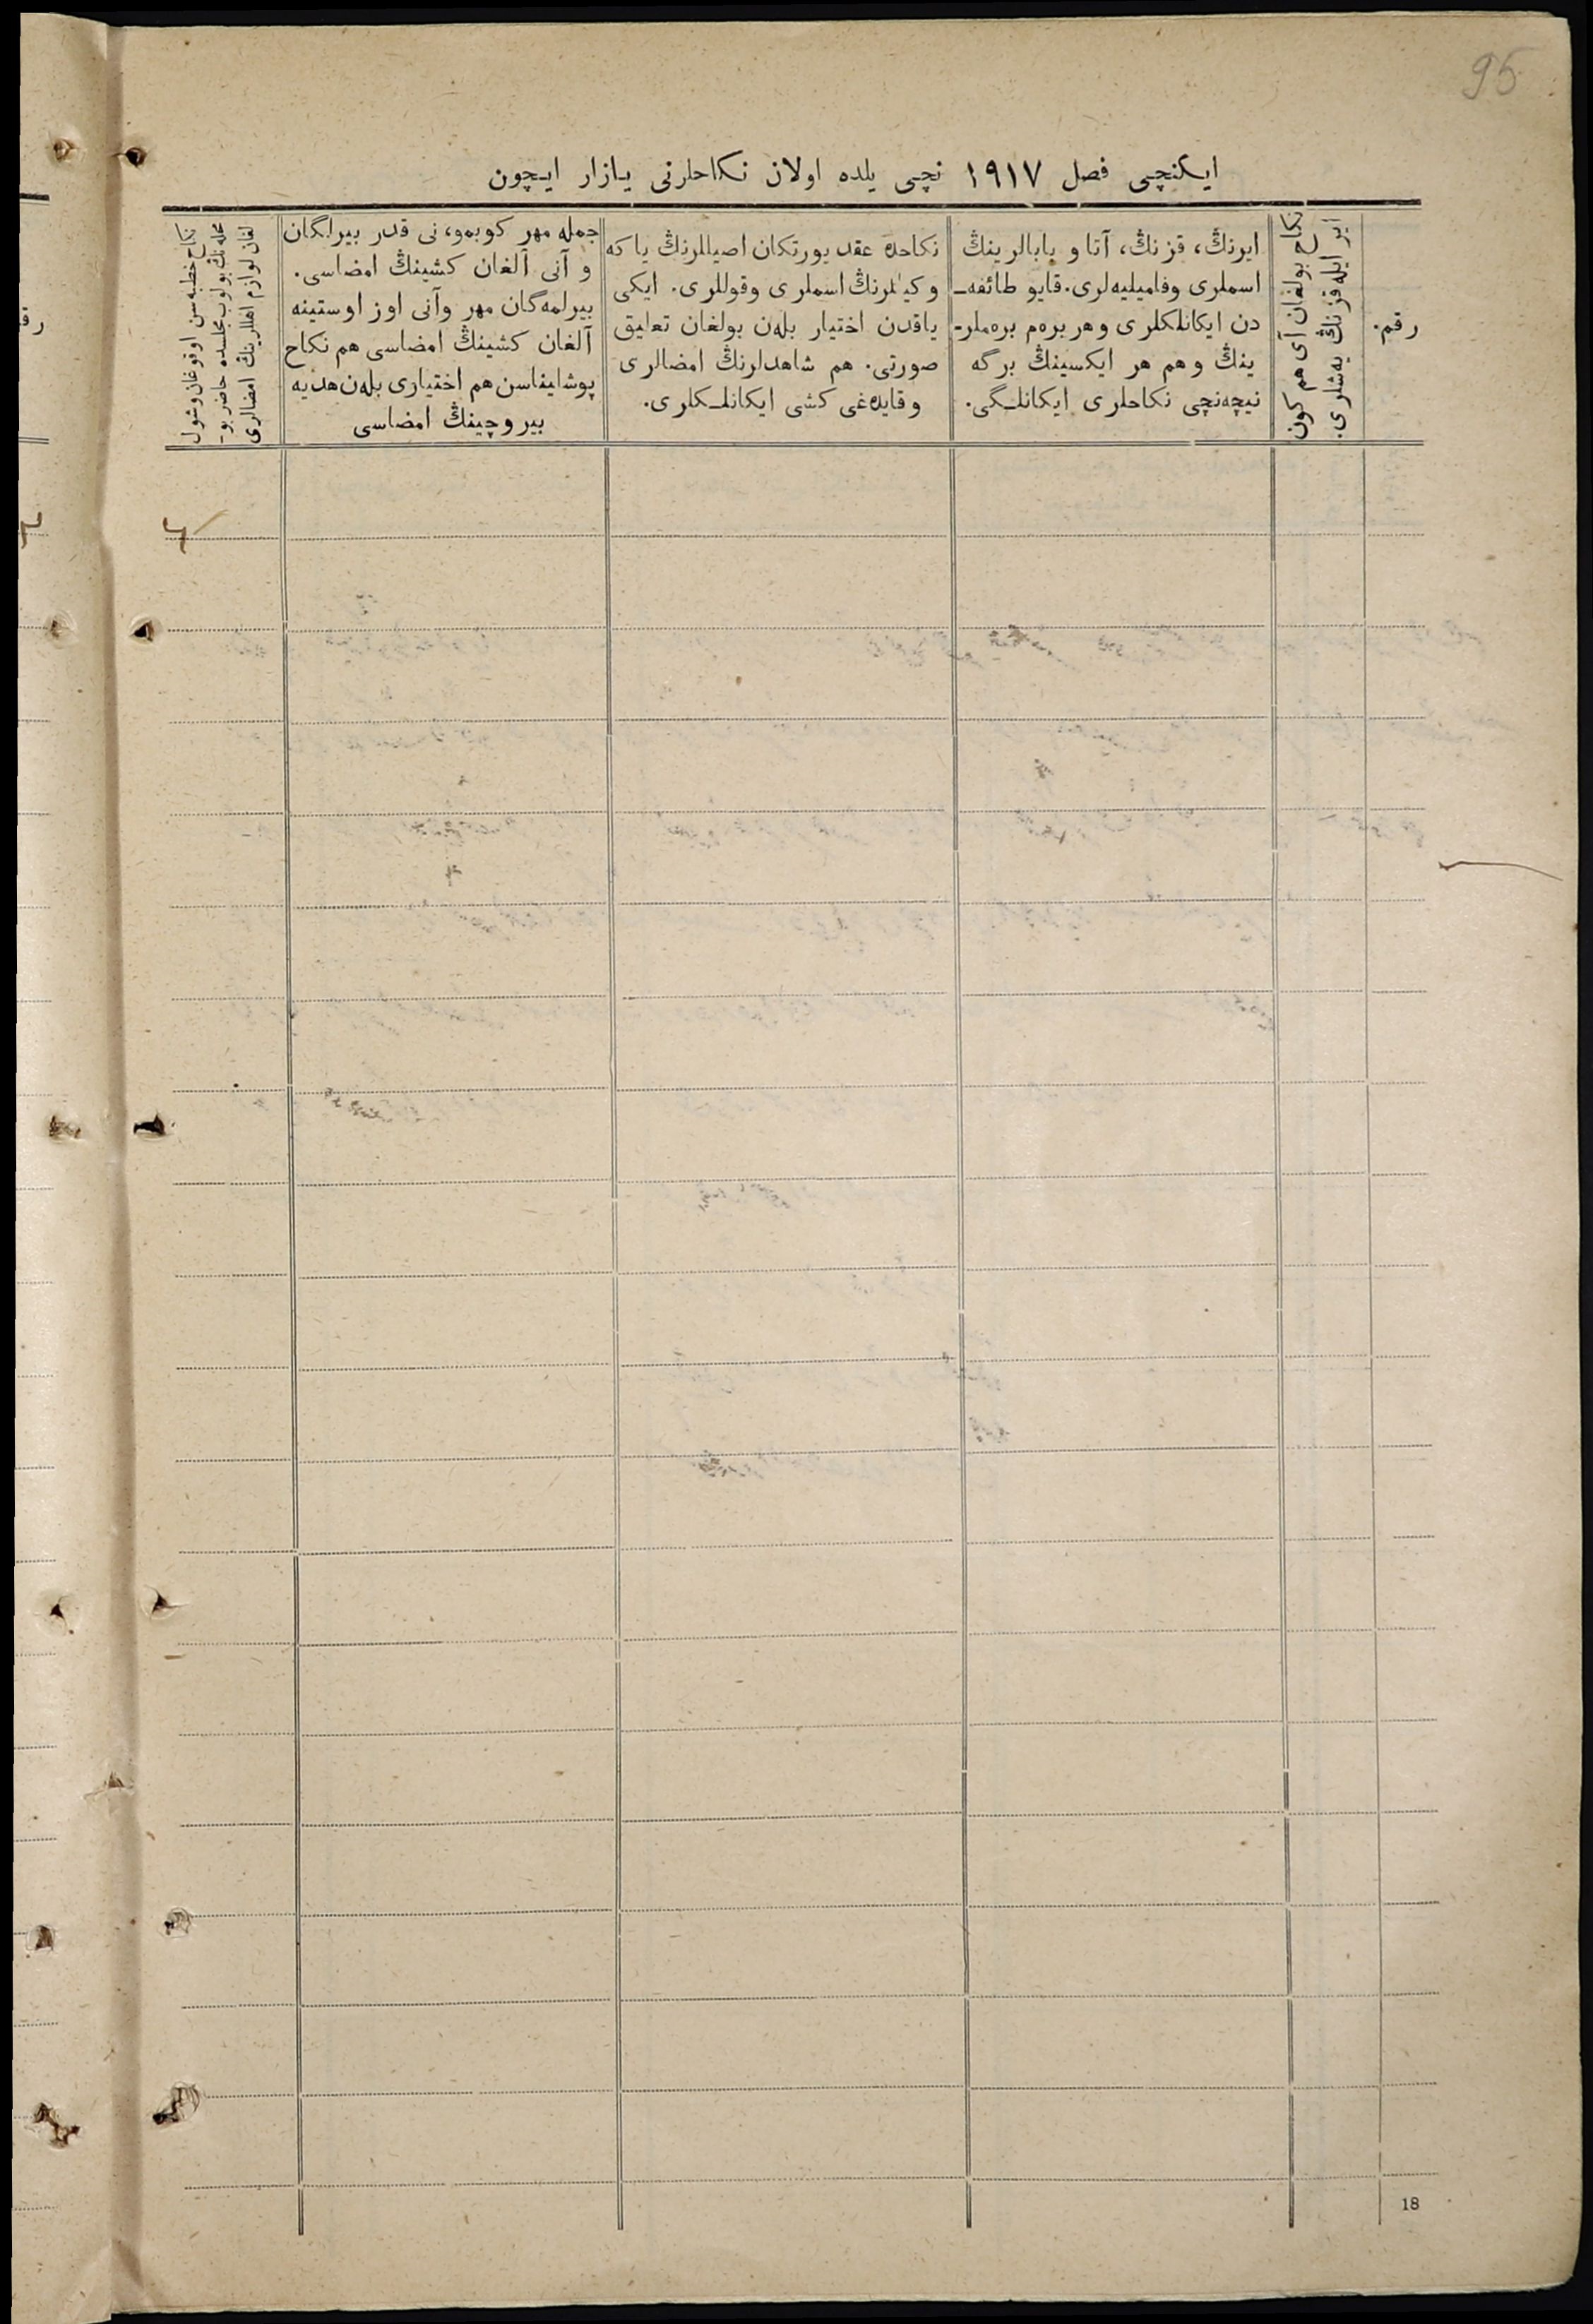 95
ایكنچی فصل ١٩١٧ نچی یلده اولان نكاحلرنی یازار ایچون
رقم.
نكاح بولغان آی هم كون
ایر ایله قزنڭ یه‌شلری.
ایرنڭ، قزنڭ، آتا و بابالرینڭ
اسملری وفامیلیه‌لری. قایو طائفه‌ـ
دن ایكانلكلری وهر بره‌م بره‌ملرـ
ینڭ وهم هر ایكسینڭ برگه
نیچه‌نچی نكاحلری ایكانلـگی.
نكاحده عقد یورتكان اصیللرنڭ یا كه
وكیللرنڭ اسملری وقوللری. ایكی
یاقدن اختیار بله‌ن بولغان تعلیق
صورتی. هم شاهدلرنڭ امضالری
وقایده‌غی كشی ایكانلـكلری.
جمله مهر كوبمو، نی قدر بیرلگان
و آنی آلغان كشینڭ امضاسی.
بیرلمه‌گان مهر وآنی اوز اوستینه
آلغان كشینڭ امضاسی هم نكاح
پوشلیناسن هم اختیاری بله‌ن هدیه
بیروچینڭ امضاسی
نكاح خطبه‌سن اوقوغان وشول
محله‌نڭ بولوب مجلسده حاضر بوـ
لغان لوازم اهللرینڭ امضالری
18